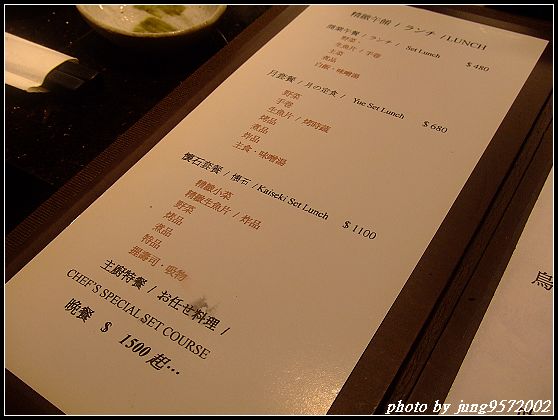 精緻午餐 / ランチ / LUNCH
商業午餐 / ランチ / Set Lunch $ 480
野菜
生魚片 / 手卷
主菜
煮品
白飯．味噌湯
月套餐 / 月の定食 / Yue Set Lunch $ 680
野菜
手卷
生魚片 / 烤時蔬
烤品
煮品
炸品
主食．味噌湯
懷石套餐 / 懐石 / Kaiseki Set Lunch $ 1100
精緻小菜
精緻生魚片 / 炸品
野菜
烤品
煮品
特品
握壽司．吸物
主廚特餐 / お任せ料理 /
CHEF'S SPECIAL SET COURSE
晚餐 $ 1500 起...
烏
photo by jung9572002